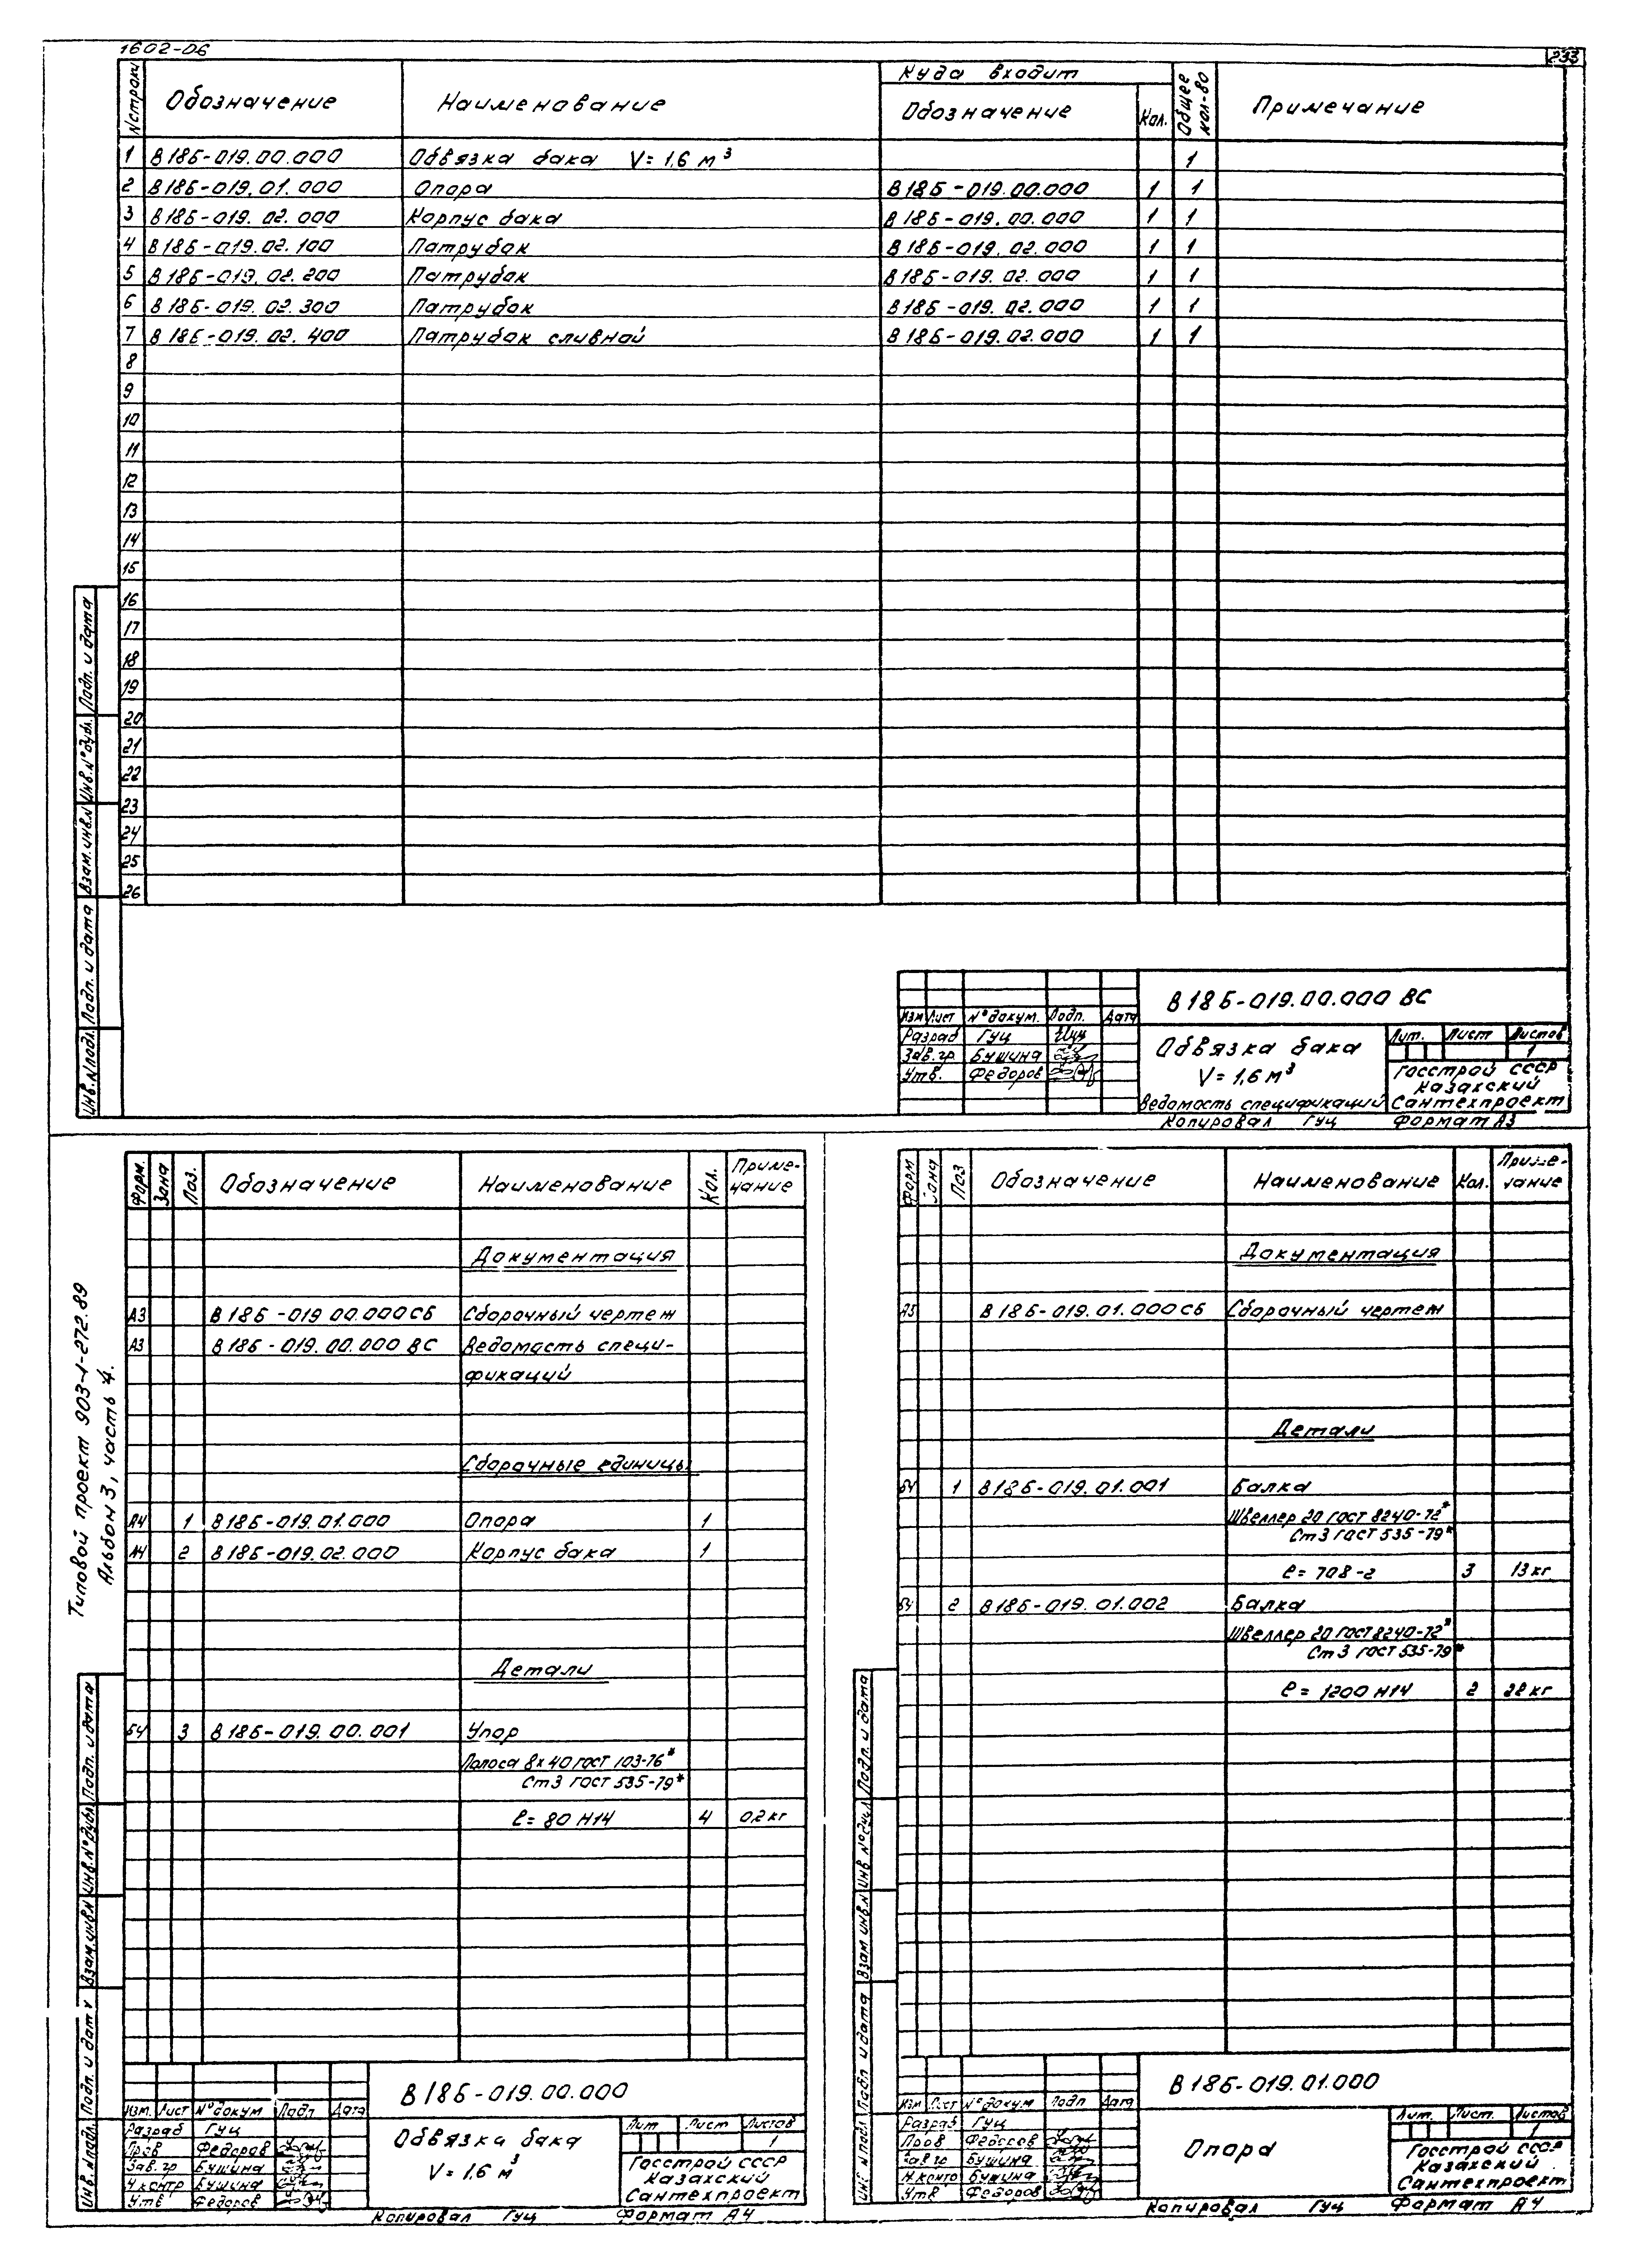 1602-06
233
N строки Обозначение Наименование Куда входит Общее кол-во Примечание
Обозначение Кол.
1 В 18Б-019.00.000 Обвязка бака V=1,6 м³ 1
2 В 18Б-019.01.000 Опора В 18Б-019.00.000 1 1
3 В 18Б-019.02.000 Корпус бака В 18Б-019.00.000 1 1
4 В 18Б-019.02.100 Патрубок В 18Б-019.02.000 1 1
5 В 18Б-019.02.200 Патрубок В 18Б-019.02.000 1 1
6 В 18Б-019.02.300 Патрубок В 18Б-019.02.000 1 1
7 В 18Б-019.02.400 Патрубок сливной В 18Б-019.02.000 1 1
8
9
10
11
12
13
14
15
16
17
18
19
20
21
22
23
24
25
26
Инв.N подл. Подп. и дата Взам.инв.N Инв.N° дубл. Подп. и дата
В 18Б-019.00.000 ВС
Изм Лист N° докум. Подп. Дата
Разраб Гуц
Зав.гр Бушина
Утв. Федоров
Обвязка бака
V=1,6 м³
Ведомасть спецификаций
Лит. Лист Листов
1
Госстрой СССР
Казахский
Сантехпроект
Копировал Гуц Формат А3
Типовой проект 903-1-272.89
Альбом 3, часть 4.
Форм. Зона Поз. Обозначение Наименование Кол. Приме-
чание
Документация
А3 В 18Б-019 00.000СБ Сборочный чертеж
А3 В 18Б-019.00.000 ВС Ведомасть специ-
фикаций
Сборочные единицы
А4 1 В 18Б-019.01.000 Опора 1
А4 2 В 18Б-019.02.000 Корпус бака 1
Детали
БЧ 3 В 18Б-019.00.001 Упор
Полоса 8х40 ГОСТ 103-76*
Ст3 ГОСТ 535-79*
ℓ= 80 Н14 4 0,2 кг
Инв.N подл. Подп. и дата Взам.инв.N Инв.N° дубл Подп. и дата
В 18Б-019.00.000
Изм. Лист N° докум Подп Дата
Разраб Гуц
Пров Федоров
Зав.гр Бушина
Н контр Бушина
Утв Федоров
Обвязка бака
V=1,6 м³
Лит Лист Листов
1
Госстрой СССР
Казахский
Сантехпроект
Копировал Гуц Формат А4
Форм Зона Поз Обозначение Наименование Кол. Приме-
чание
Документация
А3 В 18Б-019.01.000СБ Сборочный чертеж
Детали
БЧ 1 В 18Б-019.01.001 Балка
Швеллер 20 ГОСТ 8240-72*
Ст3 ГОСТ 535-79*
ℓ= 708-2 3 13 кг
БЧ 2 В 18Б-019.01.002 Балка
Швеллер 20 ГОСТ 8240-72*
Ст3 ГОСТ 535-79*
ℓ= 1200 Н14 2 22 кг
Подп и дата Взам инв.N Инв N° Подп. и дата
В 18Б-019.01.000
Изм Лист N° докум Подп Дата
Разраб Гуц
Пров Федоров
Зав гр Бушина
Н.контр Бушина
Утв Федоров
Опора
Лит. Лист. Листов
1
Госстрой СССР
Казахский
Сантехпроект
Копировал Гуц Формат А4